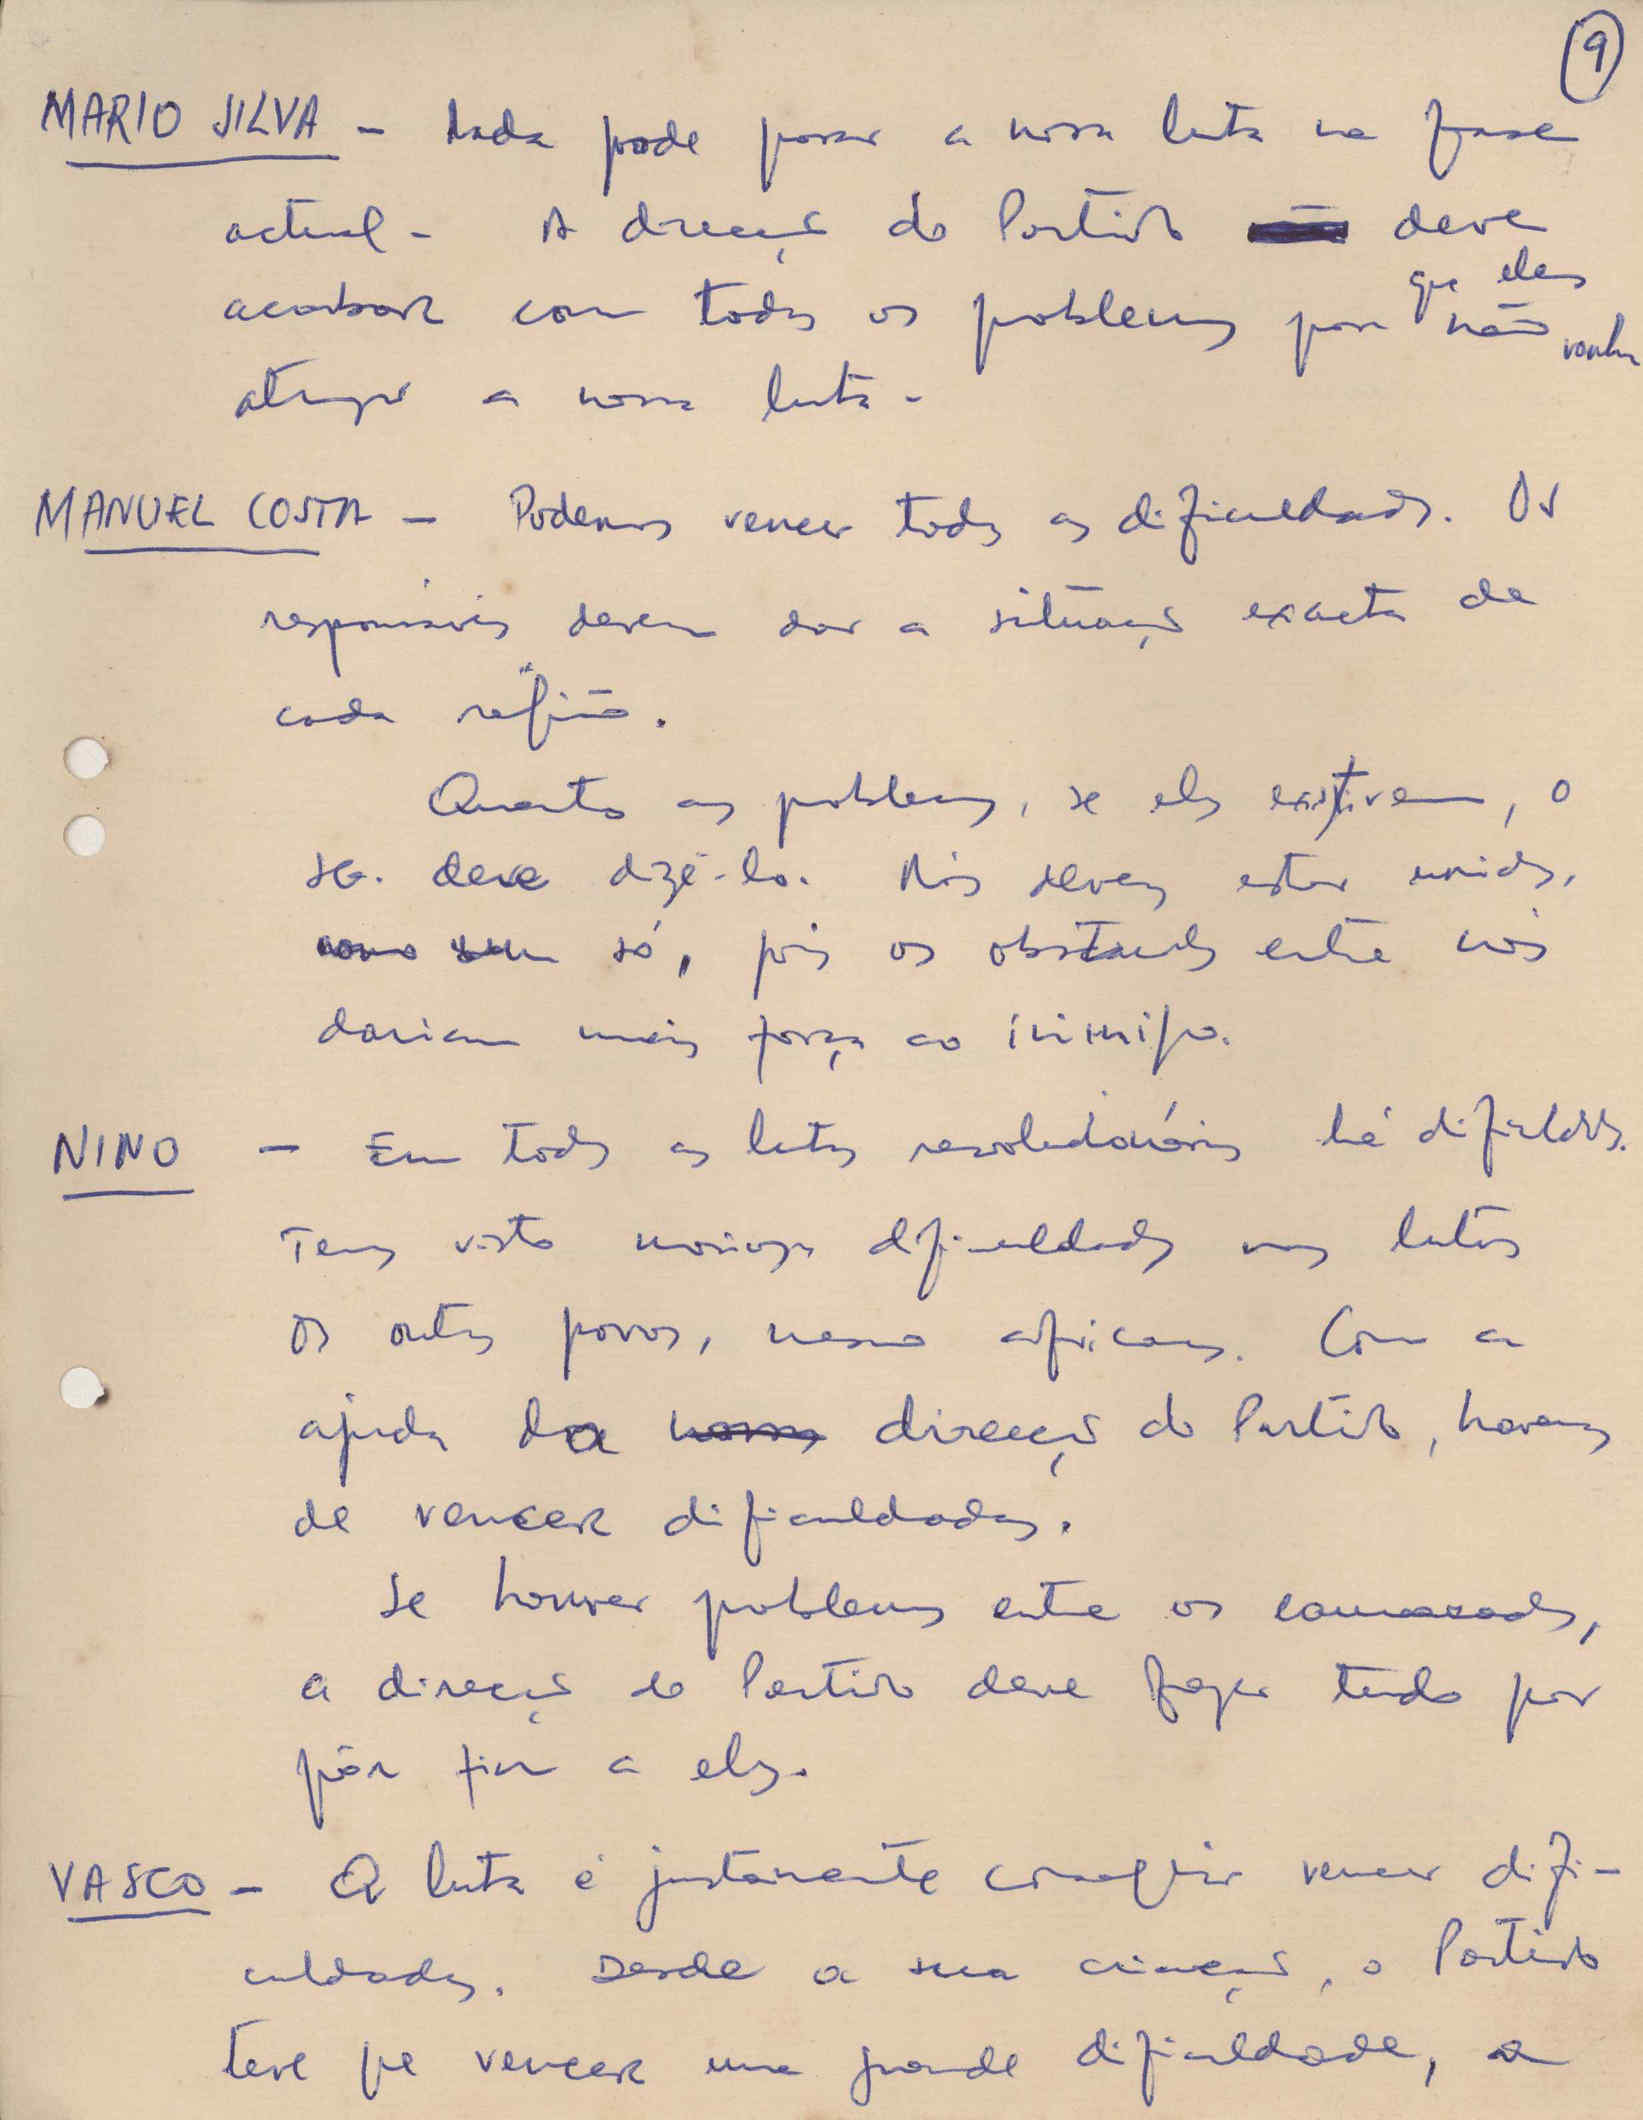 9
MARIO SILVA - Nada pode parar a nossa luta na fase
actual - A direcção do Partido deve
que eles
acabar com todos os problemas para não venham
atingir a nossa luta -
MANUEL COSTA - Podemos vencer todas as dificuldades. Os
responsáveis devem dar a situação exacta de
cada região.
Quanto aos problemas, se eles existirem, o
SG. deve dizê-lo. Nós devemos estar unidos,
como um só, pois os obstáculos entre nós
dariam mais força ao inimigo.
NINO - Em todas as lutas revolucionárias há dificuldades.
Temos visto dificuldades nas lutas
os outros povos, mesmo africanos. Com a
ajuda da nossa direcção do Partido, havemos
de vencer dificuldades.
Se houver problemas entre os camaradas,
a direcção do Partido deve fazer tudo por
pôr fim a eles.
VASCO - A luta é justamente conseguir vencer difi-
culdades. Desde a sua criação, o Partido
teve que vencer uma grande dificuldade, a